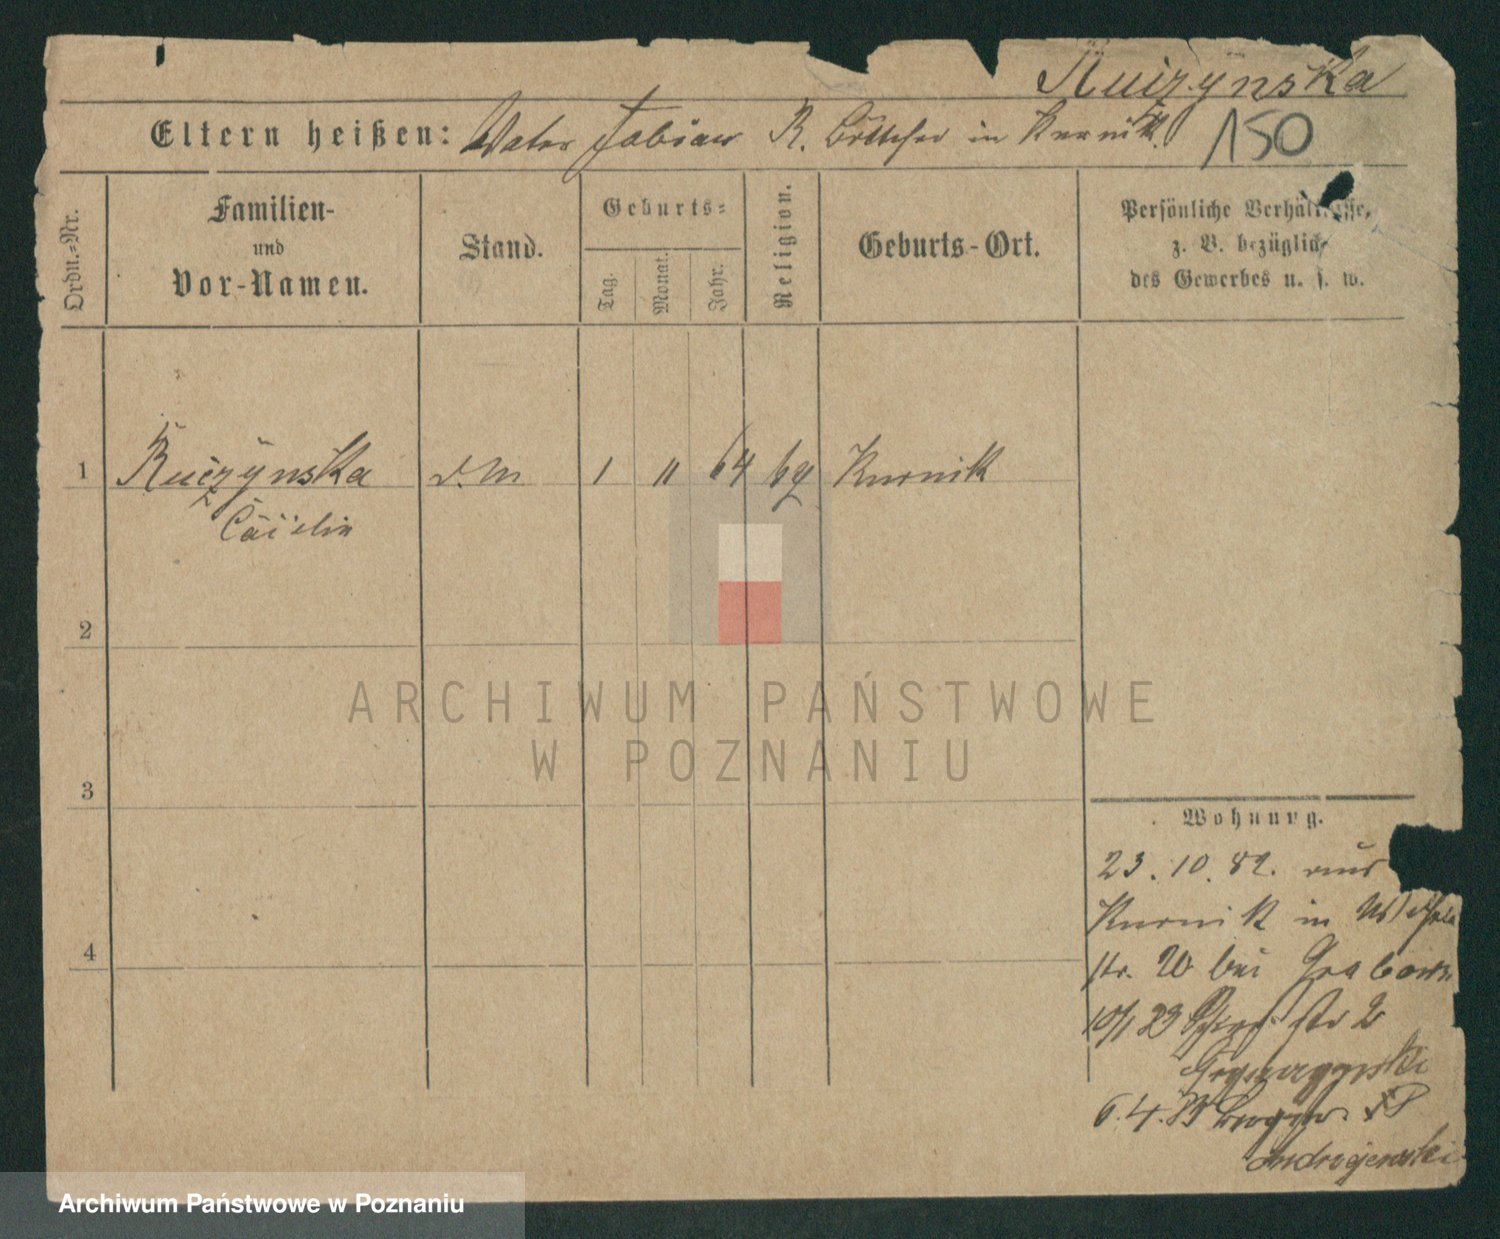 Ruczynska
Eltern heißen: Vater Fabian R. Böttcher in Kurnik. 150
Ordn.-Nr.
Familien-
und
Vor-Namen.
Stand.
Geburts-
Tag.
Monat.
Jahr.
Religion.
Geburts-Ort.
Persönliche Verhältnisse,
z. B. bezüglich
des Gewerbes u. s. w.
1 Ruczynska d. M 1 11 64 Kurnik
Cäcilia
2
3
4
Wohnung.
23. 10. 82. aus
Kurnik in
str. 20 bei Grabows
10/1 83 str 2
6. 4. 83
Androjewski
ARCHIWUM PAŃSTWOWE
W POZNANIU
Archiwum Państwowe w Poznaniu